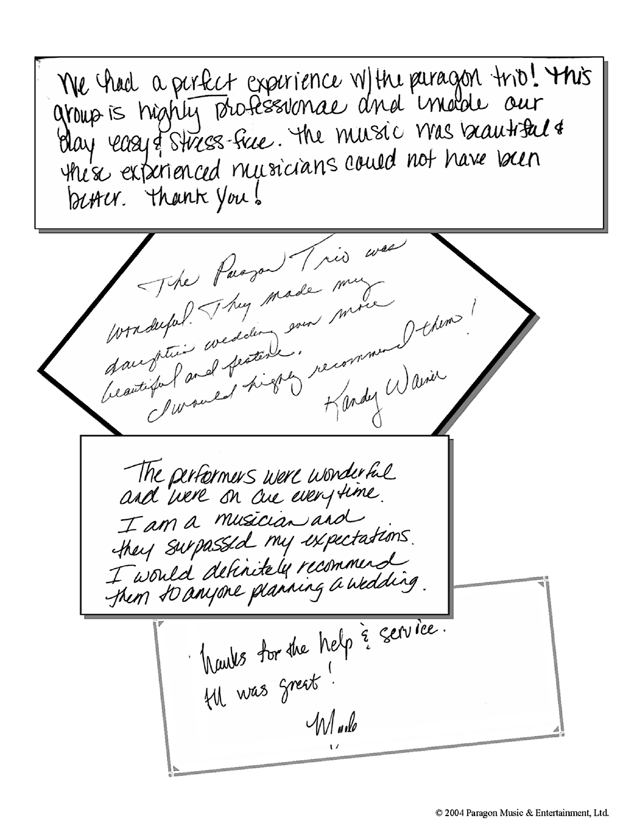 We had a perfect experience w/the paragon trio! This
group is highly professional and made our
day easy & stress-free. The music was beautiful &
these experienced musicians could not have been
better. Thank you!
The Paragon Trio was
wonderful. They made my
daughter's wedding even more
beautiful and festive.
I would highly recommend them!
Kandy
The performers were wonderful
and were on cue every time.
I am a musician and
they surpassed my expectations.
I would definitely recommend
them to anyone planning a wedding.
hanks for the help & service.
All was great!
© 2004 Paragon Music & Entertainment, Ltd.